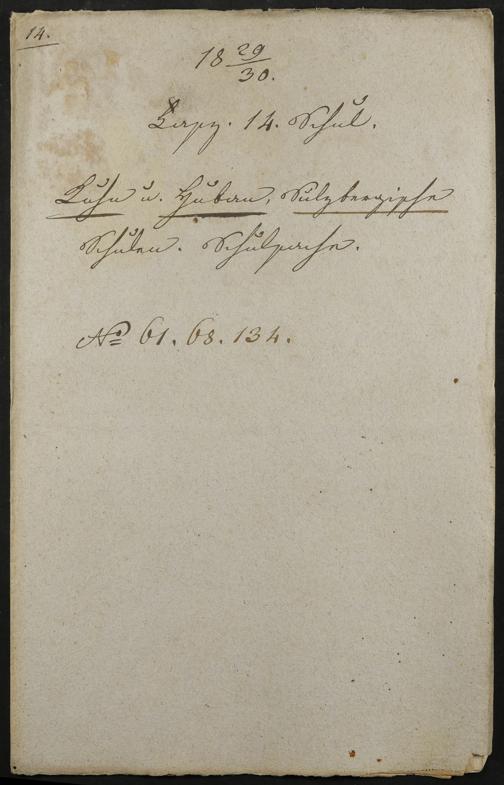 14.
18 29/30.
Capz. 14. Schul.
Lohn u. Huben, Sulzbergische
Schulen. Schulsache.
No 61. 68. 134.